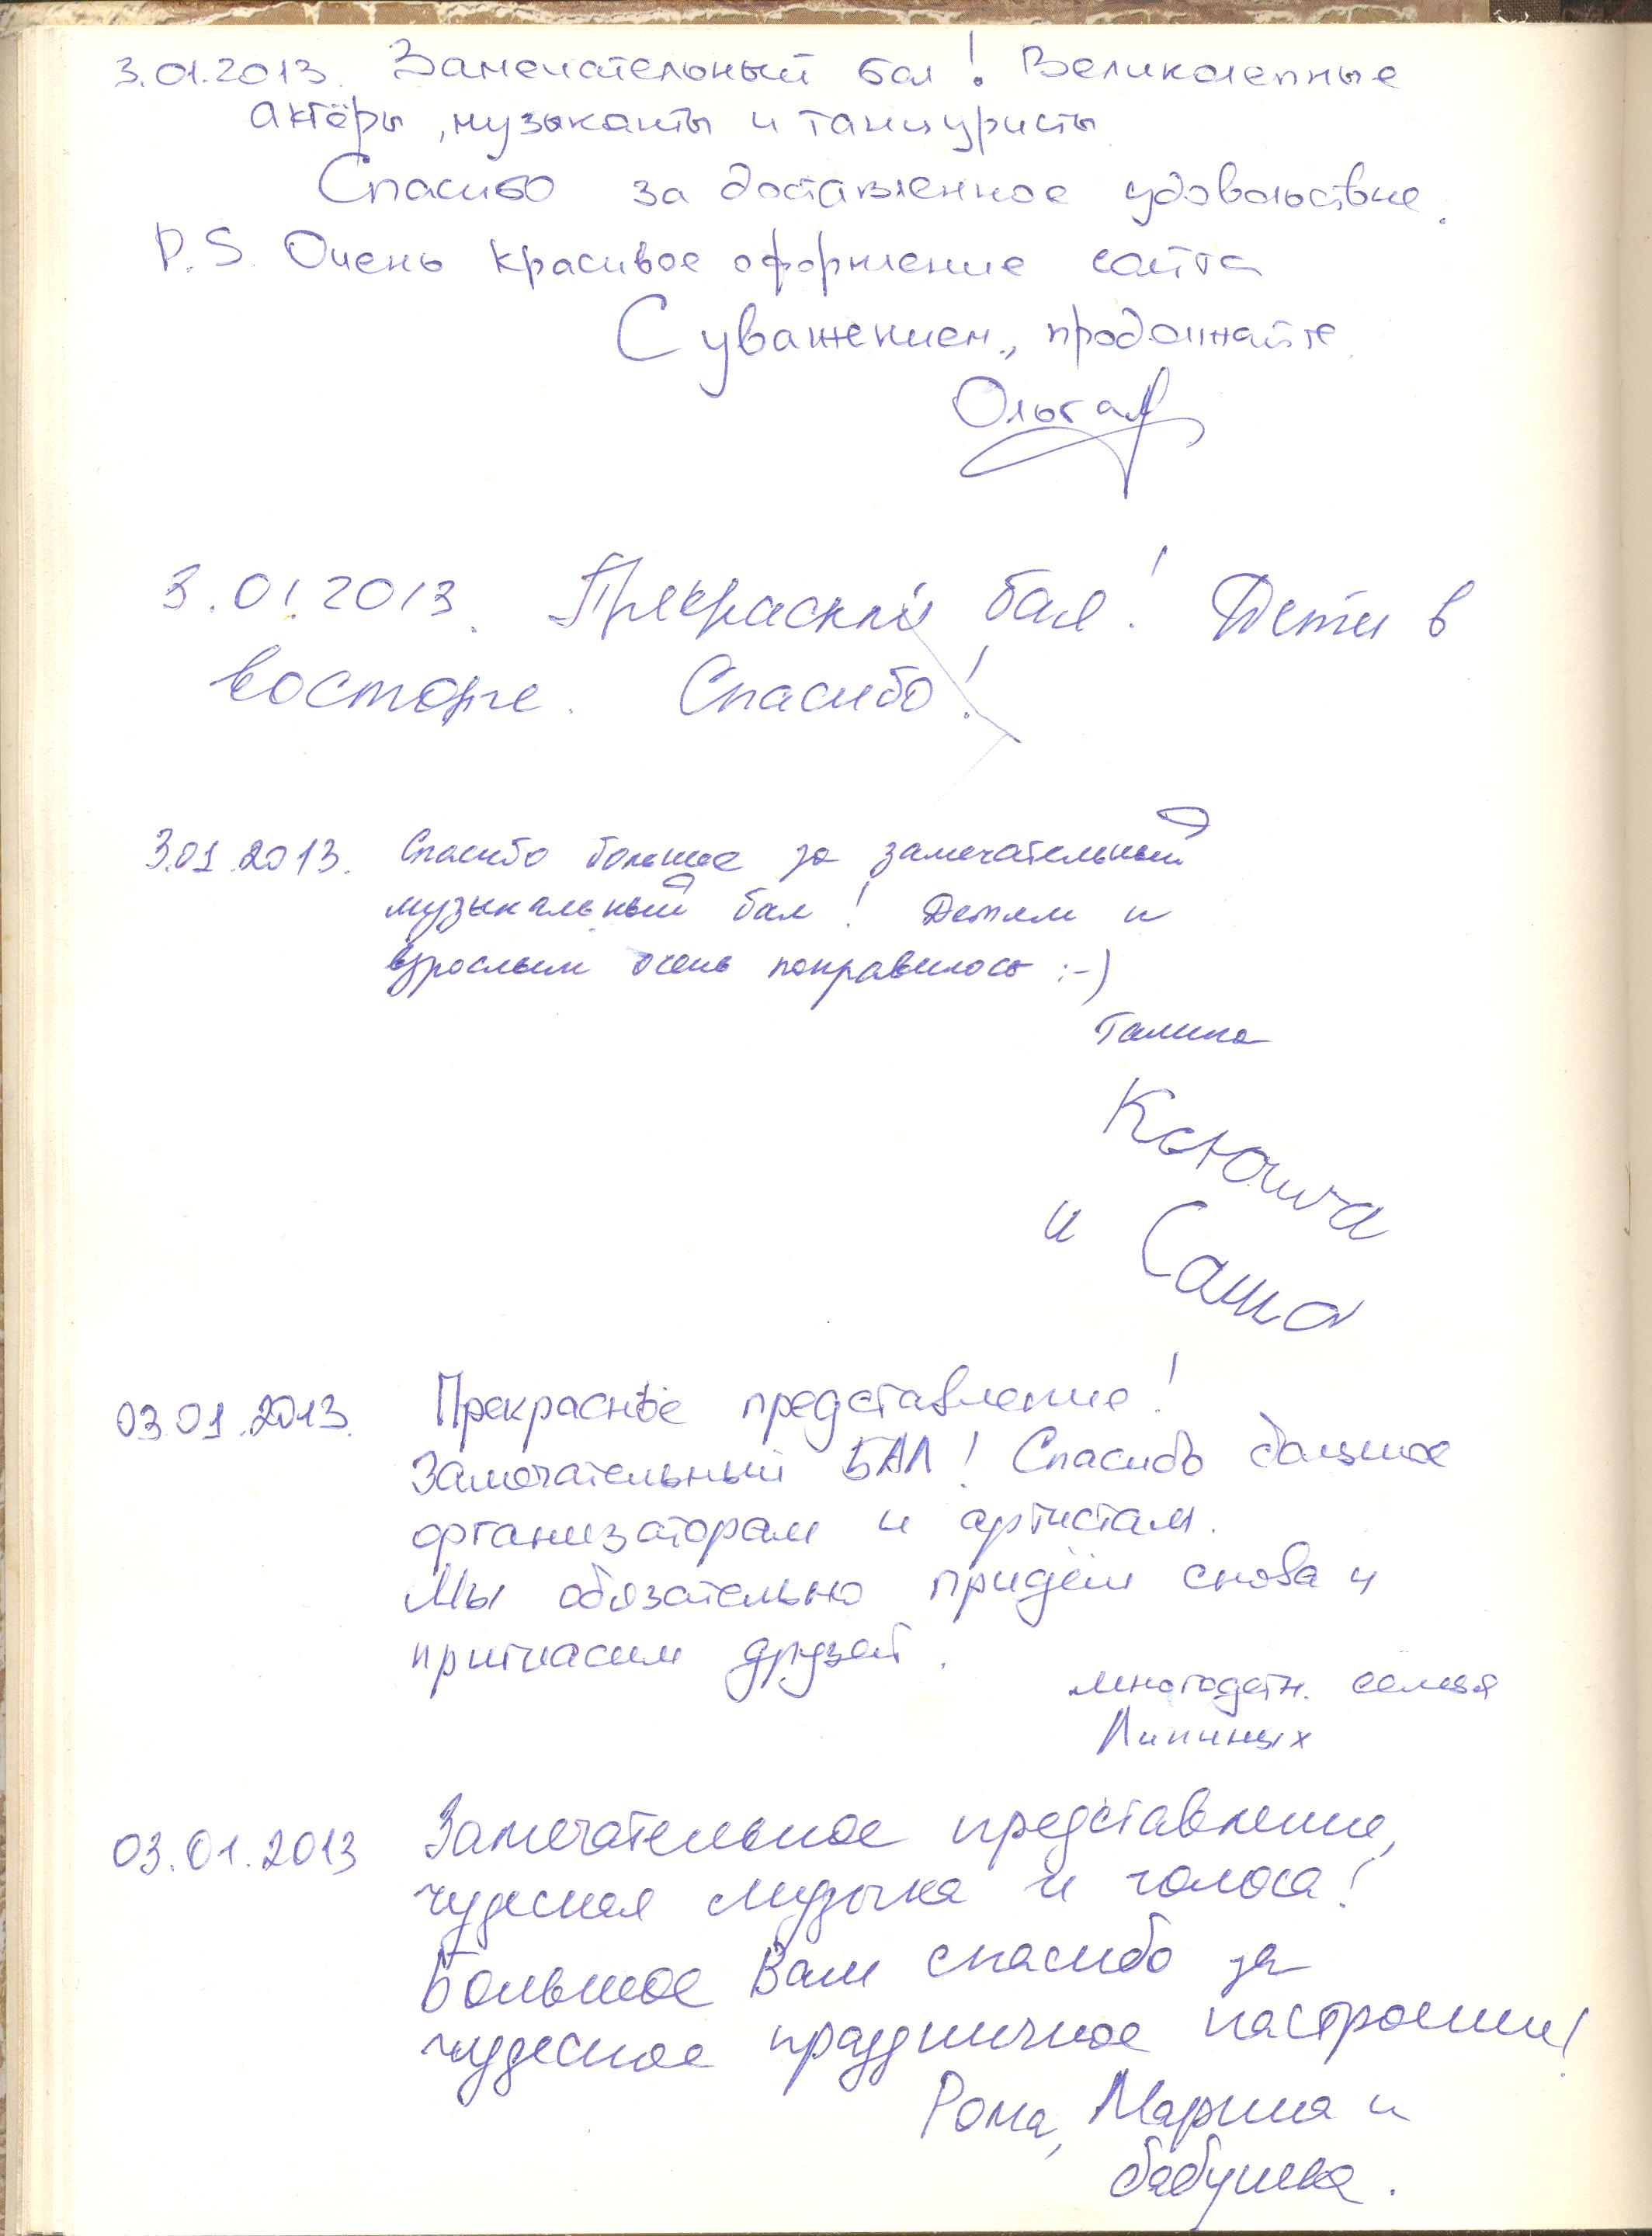 3.01.2013. Замечательный бал! Великолепные
актёры, музыканты и танцуристы
Спасибо за доставленное удовольствие.
P.S. Очень красивое оформление сайта
С уважением, продолжайте
Ольга
3.01.2013. Прекрасный бал! Дети в
восторге. Спасибо!
3.01.2013. Спасибо большое за замечательный
музыкальный бал! Детям и
взрослым очень понравилось :-)
Галина
Ксюша
и Саша
03.01.2013. Прекрасное представление!
Замечательный БАЛ! Спасибо большое
организаторам и артистам.
Мы обязательно придём снова и
пригласим друзей.
многодетн. семья
Липиных
03.01.2013 Замечательное представление,
чудесная музыка и голоса!
Большое Вам спасибо за
чудесное праздничное настроение!
Рома, Марина и
бабушка.